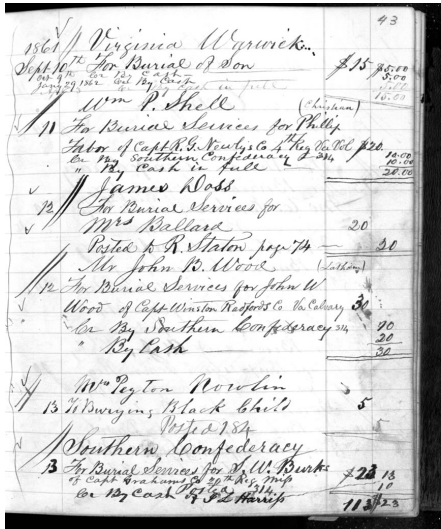 43
1861 // Virginia Warwick
Sept. 10th For Burial of Son $15 $5.00
Oct. 9th Cr By Cash 5.00
Jany 29, 1862 Cr By Cash in full
15.00
Wm P. Shell (Christian)
11 For Burial Services for Phillip
Tabor of Capt R. G. Co 4th Reg Va Vol $20
Cr By Southern Confederacy 314 10.00
" By Cash in full 10.00
20.00
// James Doss
12 // For Burial Services for
Mrs Ballard 20
Posted to R. Staton page 74 20
// Mr John B. Wood
12 For Burial Services for John W
Wood of Capt Winston Radfords Co Va Calvary 30
Cr By Southern Confederacy 314 10
" By Cash 20
30
Peyton Nowlin
13 To Burying Black Child 5
Posted 184
// Southern Confederacy
13 For Burial Services for S. W. Burks $23 13
of Capt Grahams Co Reg 10
Cr By Cash 314 113 $23